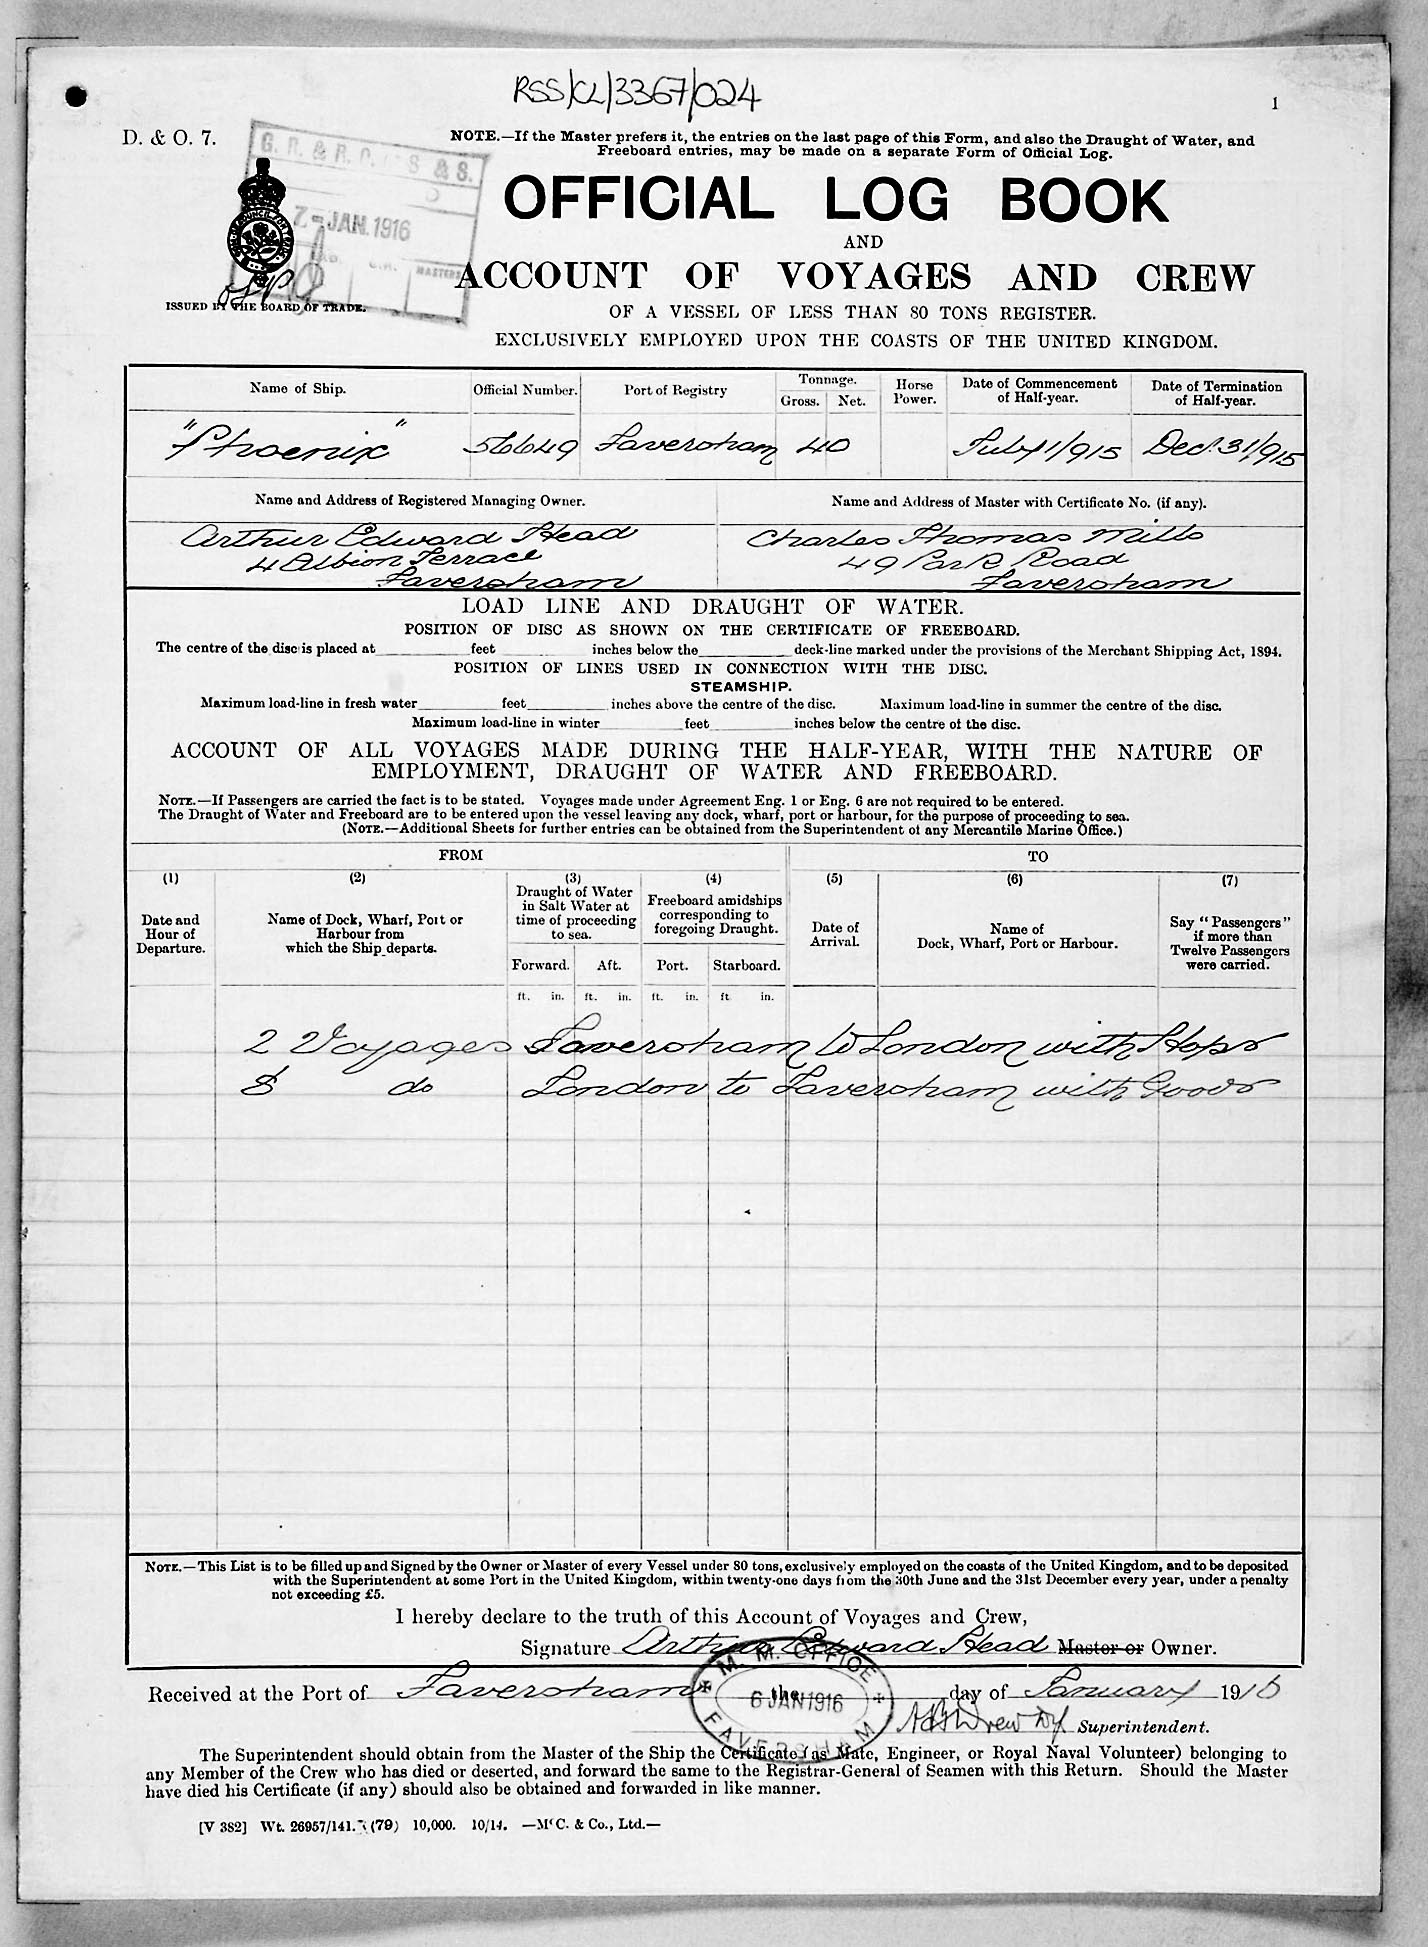 RSS/CL/3367/024
1
D. & O. 7.
NOTE.—If the Master prefers it, the entries on the last page of this Form, and also the Draught of Water, and
Freeboard entries, may be made on a separate Form of Official Log.
G. R. & R. O. S & S.
7 - JAN. 1916
MASTERS
ISSUED BY THE BOARD OF TRADE.
OFFICIAL LOG BOOK
AND
ACCOUNT OF VOYAGES AND CREW
OF A VESSEL OF LESS THAN 80 TONS REGISTER.
EXCLUSIVELY EMPLOYED UPON THE COASTS OF THE UNITED KINGDOM.
Name of Ship. Official Number. Port of Registry Tonnage. Gross. Net. Horse Power. Date of Commencement of Half-year. Date of Termination of Half-year.
"Phoenix" 56649 Faversham 40 July 1/915 Dec. 31/915
Name and Address of Registered Managing Owner. Name and Address of Master with Certificate No. (if any).
Arthur Edward Head Charles Thomas Mills
4 Albion Terrace 49 Park Road
Faversham Faversham
LOAD LINE AND DRAUGHT OF WATER.
POSITION OF DISC AS SHOWN ON THE CERTIFICATE OF FREEBOARD.
The centre of the disc is placed at feet inches below the deck-line marked under the provisions of the Merchant Shipping Act, 1894.
POSITION OF LINES USED IN CONNECTION WITH THE DISC.
STEAMSHIP.
Maximum load-line in fresh water feet inches above the centre of the disc. Maximum load-line in summer the centre of the disc.
Maximum load-line in winter feet inches below the centre of the disc.
ACCOUNT OF ALL VOYAGES MADE DURING THE HALF-YEAR, WITH THE NATURE OF
EMPLOYMENT, DRAUGHT OF WATER AND FREEBOARD.
NOTE.—If Passengers are carried the fact is to be stated. Voyages made under Agreement Eng. 1 or Eng. 6 are not required to be entered.
The Draught of Water and Freeboard are to be entered upon the vessel leaving any dock, wharf, port or harbour, for the purpose of proceeding to sea.
(NOTE.—Additional Sheets for further entries can be obtained from the Superintendent of any Mercantile Marine Office.)
FROM TO
(1) (2) (3) (4) (5) (6) (7)
Date and Hour of Departure.
Name of Dock, Wharf, Port or Harbour from which the Ship departs.
Draught of Water in Salt Water at time of proceeding to sea.
Freeboard amidships corresponding to foregoing Draught.
Date of Arrival.
Name of Dock, Wharf, Port or Harbour.
Say "Passengers" if more than Twelve Passengers were carried.
Forward. Aft. Port. Starboard.
ft. in. ft. in. ft. in. ft in.
2 Voyages Faversham to London with Hops
8 do London to Faversham with Goods
NOTE.—This List is to be filled up and Signed by the Owner or Master of every Vessel under 80 tons, exclusively employed on the coasts of the United Kingdom, and to be deposited
with the Superintendent at some Port in the United Kingdom, within twenty-one days from the 30th June and the 31st December every year, under a penalty
not exceeding £5.
I hereby declare to the truth of this Account of Voyages and Crew,
Signature Arthur Edward Head Master or Owner.
Received at the Port of Faversham the day of January 1916
M. M. OFFICE
6 JAN 1916
FAVERSHAM
Superintendent.
The Superintendent should obtain from the Master of the Ship the Certificate (as Mate, Engineer, or Royal Naval Volunteer) belonging to
any Member of the Crew who has died or deserted, and forward the same to the Registrar-General of Seamen with this Return. Should the Master
have died his Certificate (if any) should also be obtained and forwarded in like manner.
[V 382] Wt. 26957/141. (79) 10,000. 10/14. —McC. & Co., Ltd.—